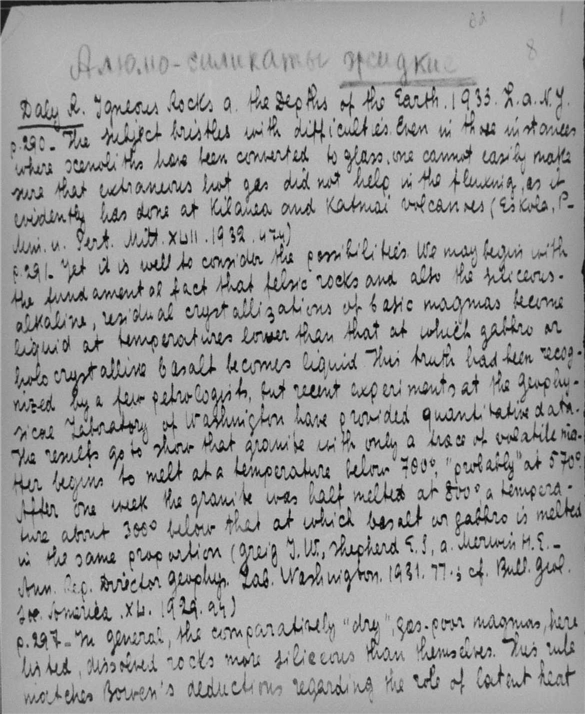 1
8
Алюмо-силикаты жидкие
Daly R. Igneous Rocks a. the Depths of the Earth. 1933. L.a.N.Y.
p.290_ The subject bristles with difficulties. Even in those instances
where xenoliths have been converted to glass, one cannot easily make
sure that extraneous hot gas did not help in the fluxing, as it
evidently has done at Kilauea and Katmai volcanoes (Eskola, P_
Min. u. Petr. Mitt. XLII. 1932. 474)
p.291_ Yet it is well to consider the possibilities. We may begin with
the fundamental fact that felsic rocks and also the siliceous-
alkaline, residual crystallizations of basic magmas become
liquid at temperatures lower than that at which gabbro or
holocrystalline basalt becomes liquid This truth had been recog-
nized by a few petrologists, but recent experiments at the Geophy-
sical Laboratory of Washington have provided quantitative data.
The results go to show that granite with only a trace of volatile mat-
ter begins to melt at a temperature below 700°, "probably" at 570°
After one week the granite was half melted at 800° a tempera-
ture about 300° below that at which basalt or gabbro is melted
in the same proportion (Greig J.W., Shepherd E.S, a. Merwin H.E._
Ann. Rep. Director Geophys. Lab. Washington. 1931. 77.; cf. Bull. Geol.
Soc. America. XL. 1929. 94)
p.297_ In general, the comparatively "dry", gas-poor magmas, here
listed, dissolved rocks more siliceous than themselves. This rule
matches Bowen's deductions regarding the role of latent heat